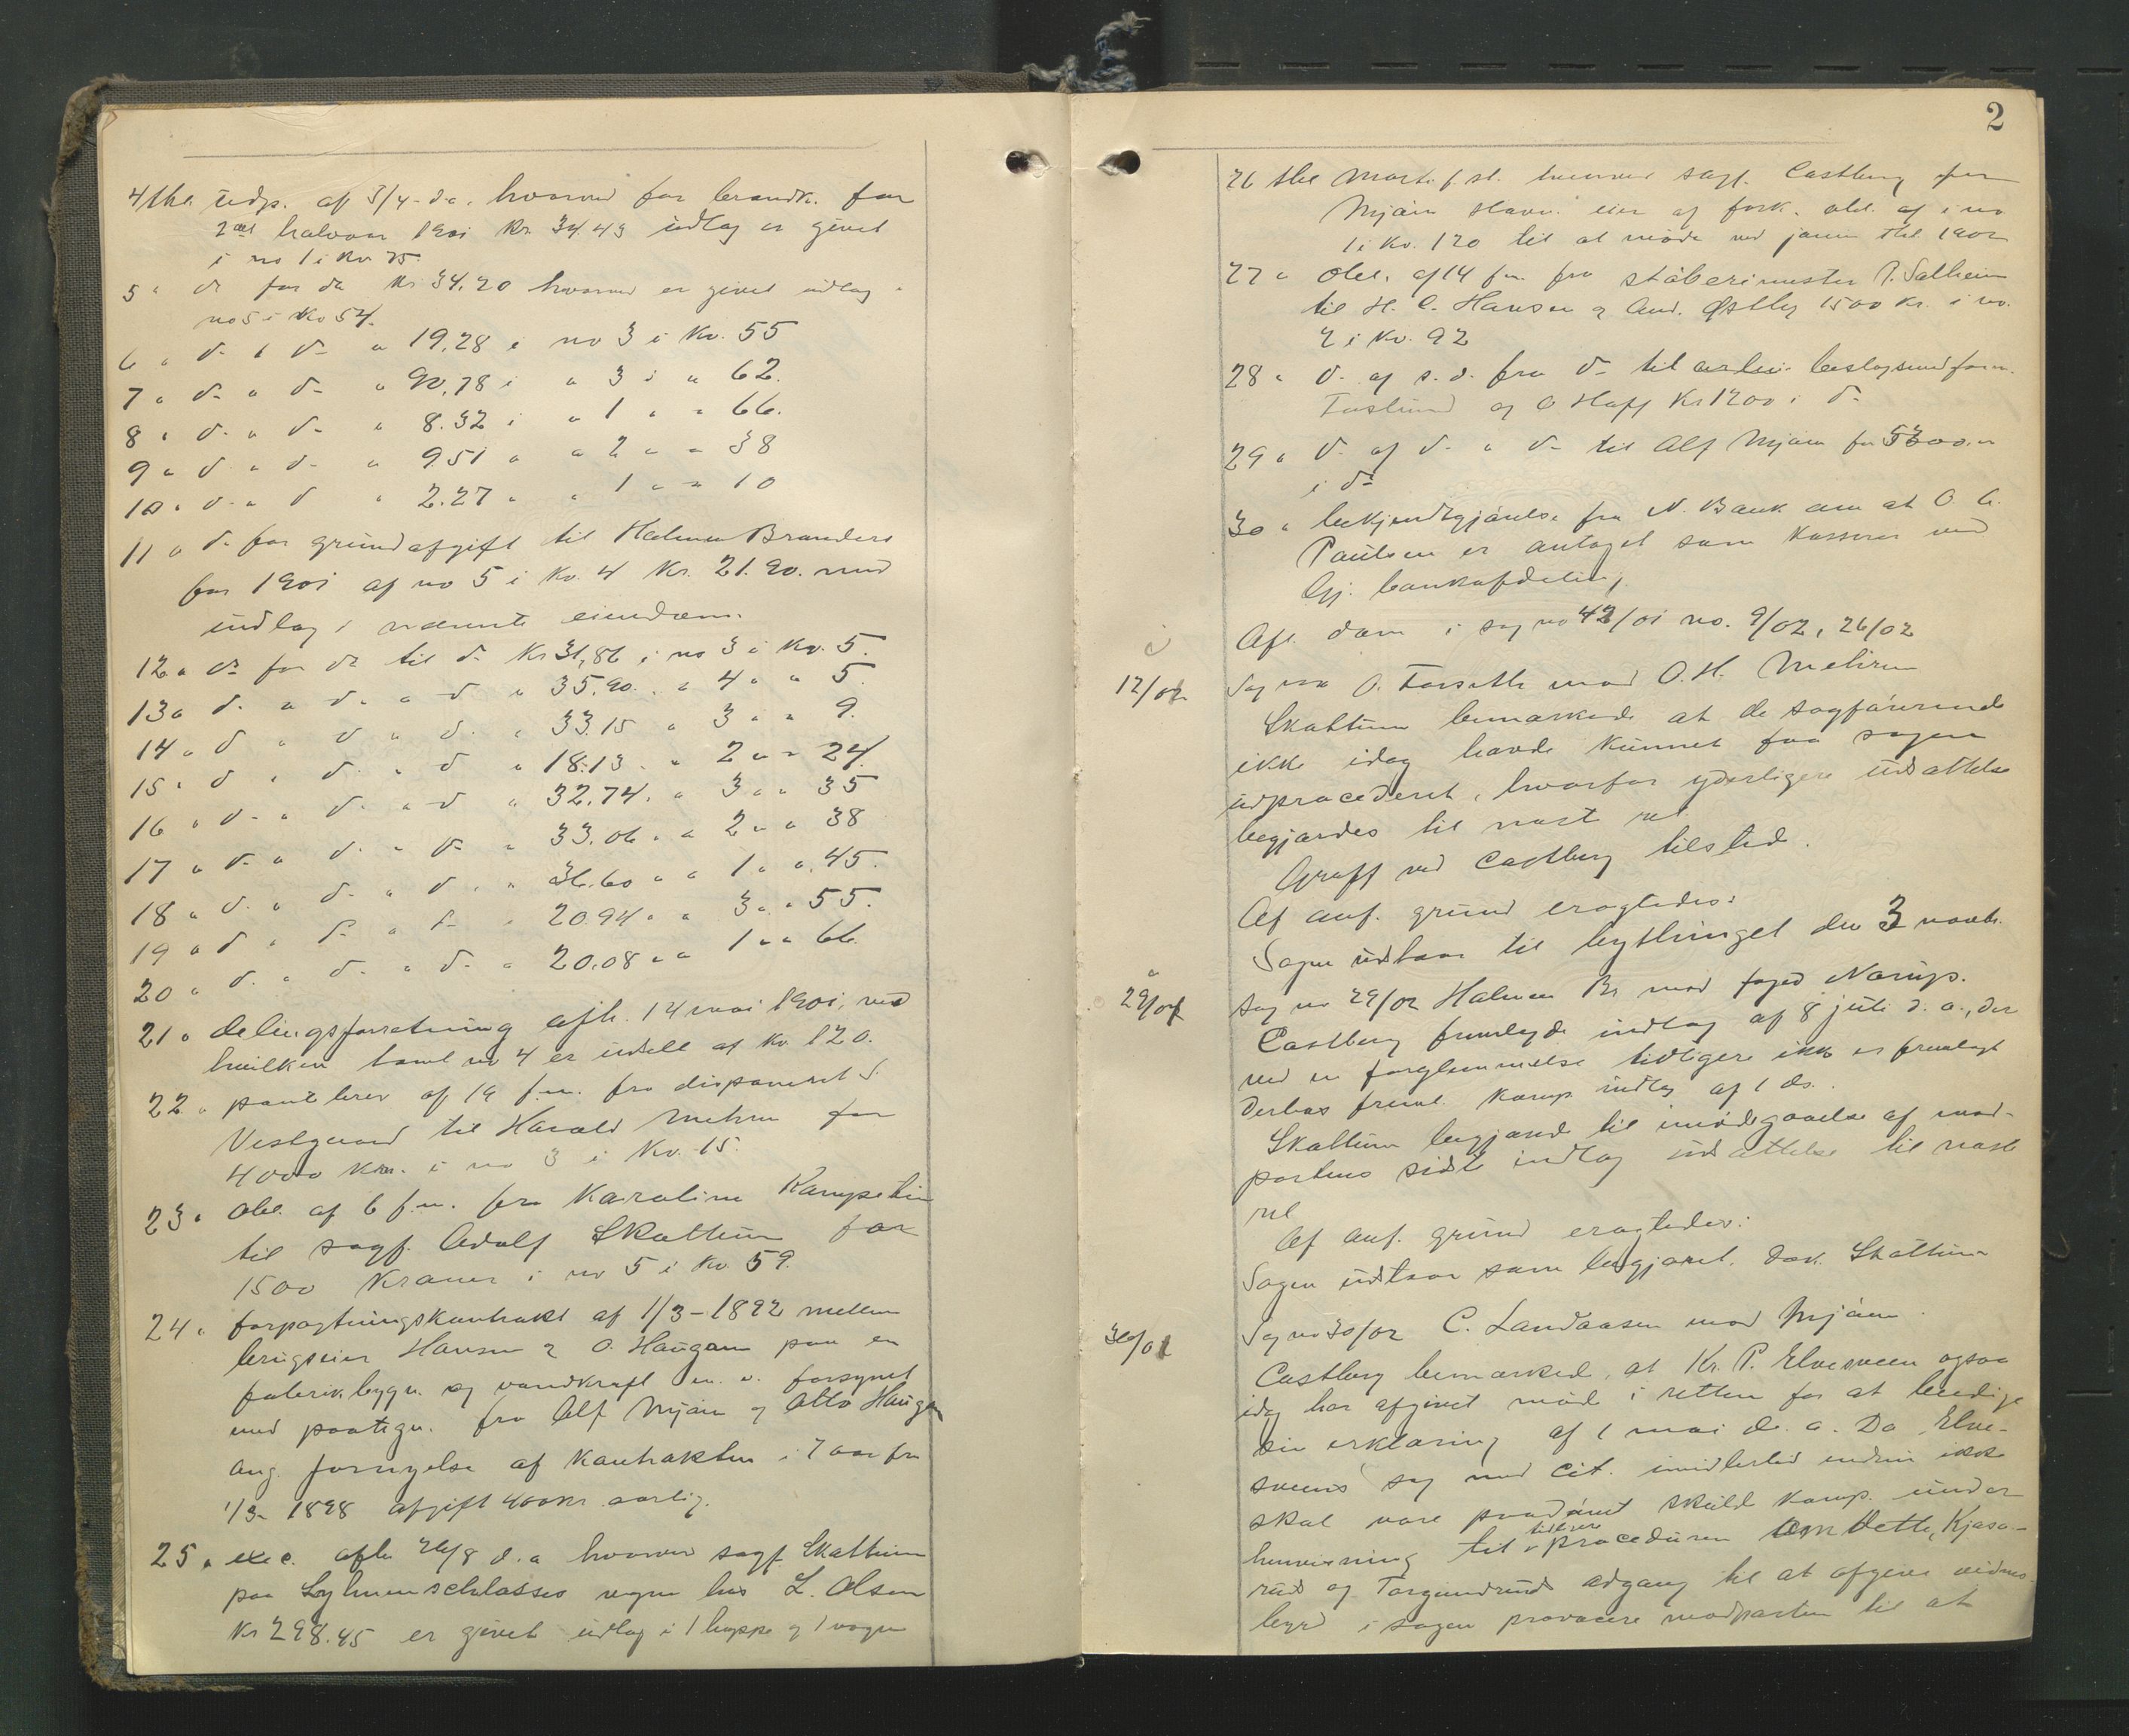 4 thl. udp. af 3/4 d.a. hvorved for brandk. for
2det halvaar 1901 kr. 34.43 udlag er givet
i no 1 i Kv 75.
5 " do for do kr 34.20 hvorved er givet udlag i
no 5 i Kv 54.
6 " d- " d- " 19.28 i no 3 i Kv. 55
7 " d- " d- " 90.78 i " 3 i " 62.
8 " d- " d- " 8.32 i " 1 " " 66.
9 " d- " d- " 9.51 " " 2 " " 38
10 " d- " d- " 2.27 " " 1 " " 10
11 " do for grundafgift til Holmen Branderi
for 1901 af no 5 i Kv. 4 Kr. 21.90. med
udlag i nævnte eiendom.
12 " do for do til do Kr 31,86 i no 3 i Kv. 5.
13 " d- " d- " d- " 35.90. " 4 " " 5.
14 " d- " d- " d- " 33.15 " 3 " " 9.
15 " d- " d- " d- " 18.13. " 2 " " 24.
16 " d- " d- " d- " 32.74. " 3 " " 35
17 " d- " d- " d- " 33.06. " 2 " " 38
18 " d- " d- " d- " 36.60 " " 1 " " 45.
19 " d- " d- " d- " 20.94 " " 3 " " 55.
20 " d- " d- " d- " 20.08 " " 1 " " 66.
21 " delingsforretning afh. 14 mai 1901, ved
hvilken tomt no 4 er utdelt af Kv. 120.
22 " pantebrev af 19 f.m. fra disponent S.
Vestgaard til Harald Mehren for
4000 kr. i no 3 i Kv. 15.
23 " obl. af 6 f.m. fra Karoline
til sagf. Adolf Skattum for
1500 Kroner i no 5 i Kv. 59.
24 " forpagtningskontrakt af 1/3-1892 mellem
brugseier Hansen & O. Haugan paa en
fabrikbygn. og vandkraft m. v. forsynet
med paategn. fra Alf Mjøen og Otto Haugan
ang. fornyelse af Kontrakten i 7 aar fra
1/3- 1898 afgift 400 kr aarlig.
25 " exe. afh 26/8 d.a hvorved sagf. Skattum
paa vegne hos L. Olsen
kr 298.45 er givet udlag i 1 hoppe og 1 vogn
2
26 thl sagf. Castberg for
Mjøen eier af af i no
1 i Kv. 120 til at møde ved thl 1902
27 " obl. af 14 f.m. fra støberimester P. Solheim
til H. C. Hansen & And. Østby 1500 Kr. i no.
2 i Kv. 92
28 " d- af s. d. fra d- til
og O Hoff Kr 1200 i d-
29 " d- af d- " d- til Alf Mjøen for 5300 "
i d-
30 " bekjendtgjørelse fra N. Bank om at O. C.
Paulsen er antaget som Kasserer ved
Gj. bankafdeling.
Afl. dom i sag no 42/01 no. 9/02, 26/02
12/02 Sag no O. Forseth mod O. H. Mehren
Skattum bemærkede at de sagførerende
ikke idag havde kunnet faa sagen
udprocederet, hvorfor yderligere udsættelse
begjærdes til næst ret.
Graff ved Castberg tilstede.
Af anf. grund eragtedes:
Sagen udstaar til bythinget den 3 novb.
29/02 Sag no 29/02 Holmen Br. mod foged Nørup.
Castberg fremlagde indlæg af 8 juli d. a., der
ved en forglemmelse tidligere ikke er fremlagt
Derhos freml. Komp. indlæg af 1 ds.
Skattum begjærde til imødegaaelse af mod-
partens sidste indlæg udsættelse til næste
ret
Af anf. grund eragtedes:
Sagen udstaar som begjæret. Dok. Skattum
30/02 Sag no 30/02 C. Landaasen mod Mjøen.
Castberg bemærked, at Kr. P. Elvesveen ogsaa
idag har afgivet møde i retten for at beedige
sin erklæring af 1 mai d. a. Da Elve-
sveens sag med cit. imidlertid endnu ikke
skal være paadømt skulde komp. under
henvisning til tidligere proceduren om dette, Kjøs-
rud og Torgundruds adgang til at afgive vidnes-
byrd i sagen provocere modparten til at